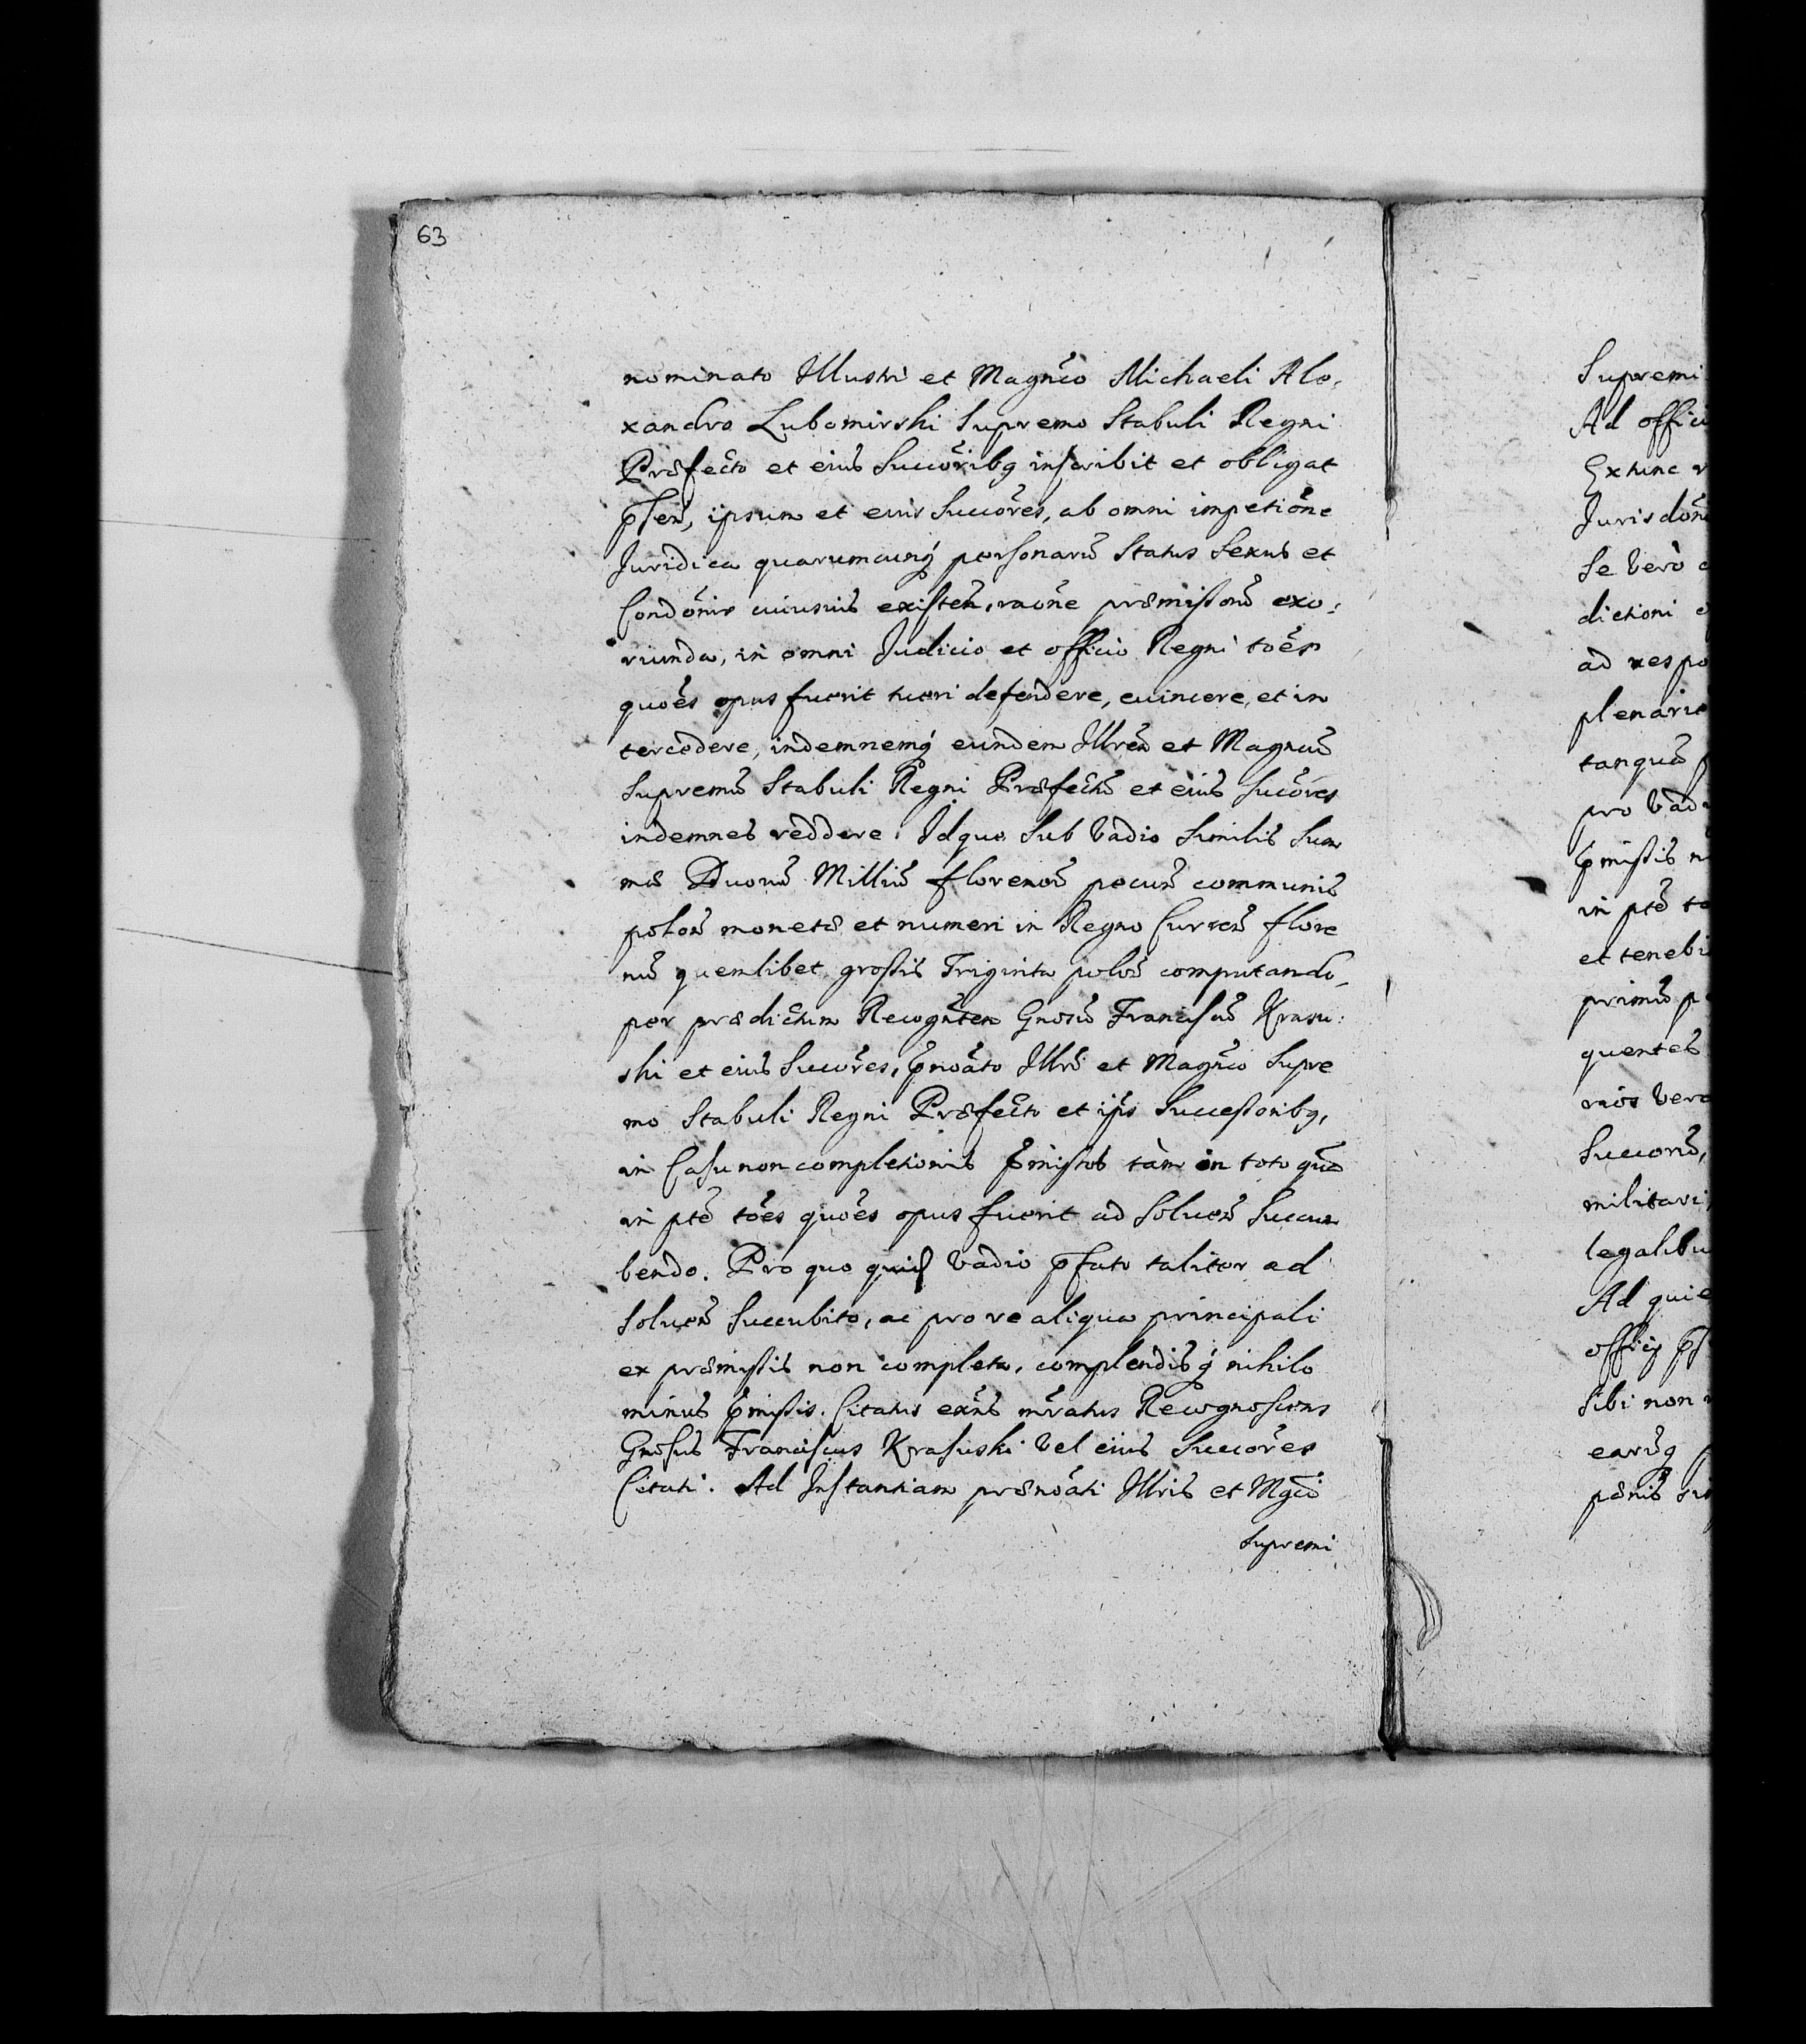 63
nominato Illustri et Magñco Michaeli Ale,
xandro Lubomirski Supremo Stabuli Regni
Præfecto et eius Succõribq inscribit et obligat
ipsum et eius Succõres, ab omni impetiõne
Juridica quarumcunq personarũ Status Sexus et
Condõnis cuiusuis existeñ, raõne præmissorũ exo,
riunda, in omni Judicio et officio Regni tões
quões opus fuerit tueri defendere, euincere, et in
tercedere, indemnemq eundem Illrem et Magncũ
Supremũ Stabuli Regni Præfectũ et eius Succõres
indemnes reddere. Idque Sub Vadio Similis Sum
mæ Duorũ Milliũ florenorũ pecuñ communis
poloñ monetæ et numeri in Regno Curreñ flore
nũ quemlibet grossis Triginta poloñ computando,
per prædictum Recogñten Gnosũ Franciscũ Krasu:
ski et eius Succõres, p̃noãto Illri et Magñco Supre
mo Stabuli Regni Præfecto et ip̃s Successoribq,
in Casu non completionis p̃missorũ tàm in toto quã
in ptẽ tões quões opus fuerit ad Soluenũ Succum
bendo. Pro quo quid Vadio p̃fato taliter ad
Soluenũ Succubito, ac pro re aliqua principali
ex præmissis non completa, complendisq nihilo
minus p̃missis. Citatus exñs mr̃atus Recognoscens
Gnosus Franciscus Krasuski Vel eius Succõres
Citati. Ad Instantiam prænoãti Illris et Mgci
Supremi
Supremi
Ad offici
Extunc
Jurisdõn
Se Verò
dictioni
ad respo
plenarie
tanquã
pro Vad
p̃missis n
in ptẽ to
et tenebi
primũ p
quentes
rios Vero
Succorũ,
militari,
legalibu
Ad quie
officÿ
Sibi non
earũq
pænis